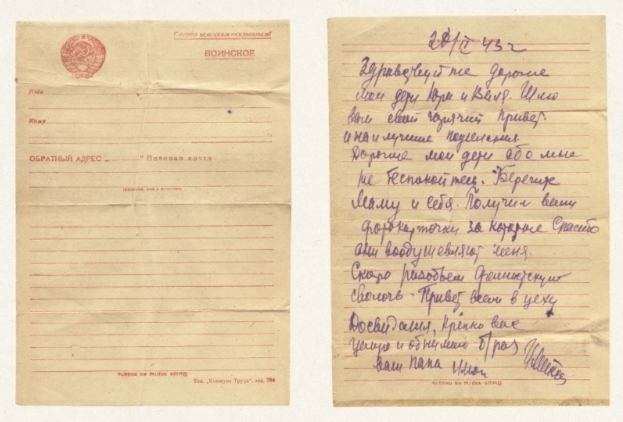 Смерть немецким оккупантам!
ВОИНСКОЕ
Куда
Кому
ОБРАТНЫЙ АДРЕС „ " Полевая почта
Тип. „Коммун. Труд", зак. 284
28/II 43 г
Здравствуйте дорогие
мои дети Юра и Валя. Шлю
вам свой горячий привет
и наилучшие пожелания
Дорогие мои дети або мне
не беспокойтесь. Берегите
Маму и себя. Получил ваши
фотокарточки за которые спасибо
они воодушевляют меня.
Скоро разобьем фашистскую
сволочь. Привет всем в цеху
Досвидания, крепко вас
целую и обнимаю б/раз
ваш папа